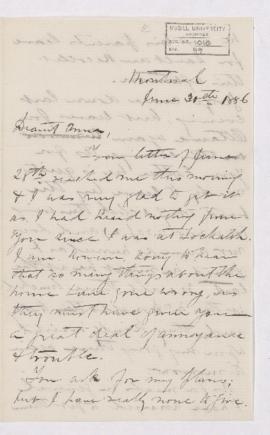 McGILL UNIVERSITY
ARCHIVES
ACC. NO. 1010
REF.
Montreal
June 30th 1886
Dearest Anna,
Your letter of June
28th reached me this morning
& I was very glad to get it
as I had heard nothing from
you since I was at
I am however sorry to hear
that so many things about the
home have gone wrong, as
they must have given you
a great deal of annoyance
& trouble.
You ask for my plans;
but I have really none to give.